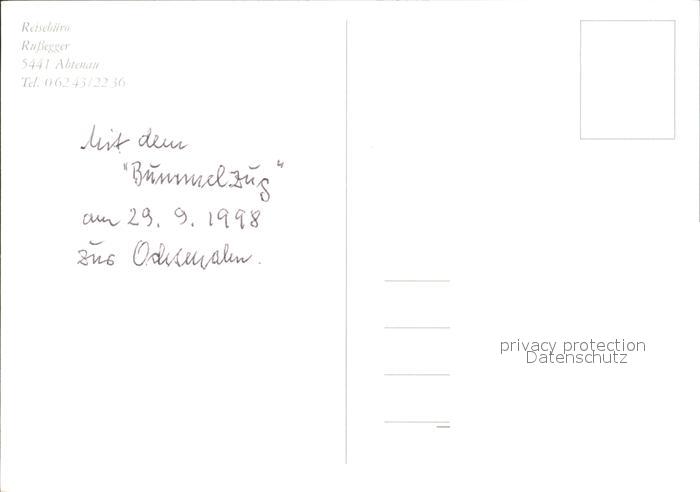 Reisebüro
Rußegger
5441 Abtenau
Tel. 06243/2236
Mit dem
"Bummelzug"
am 29. 9. 1998
zur Ochsenalm.
privacy protection
Datenschutz